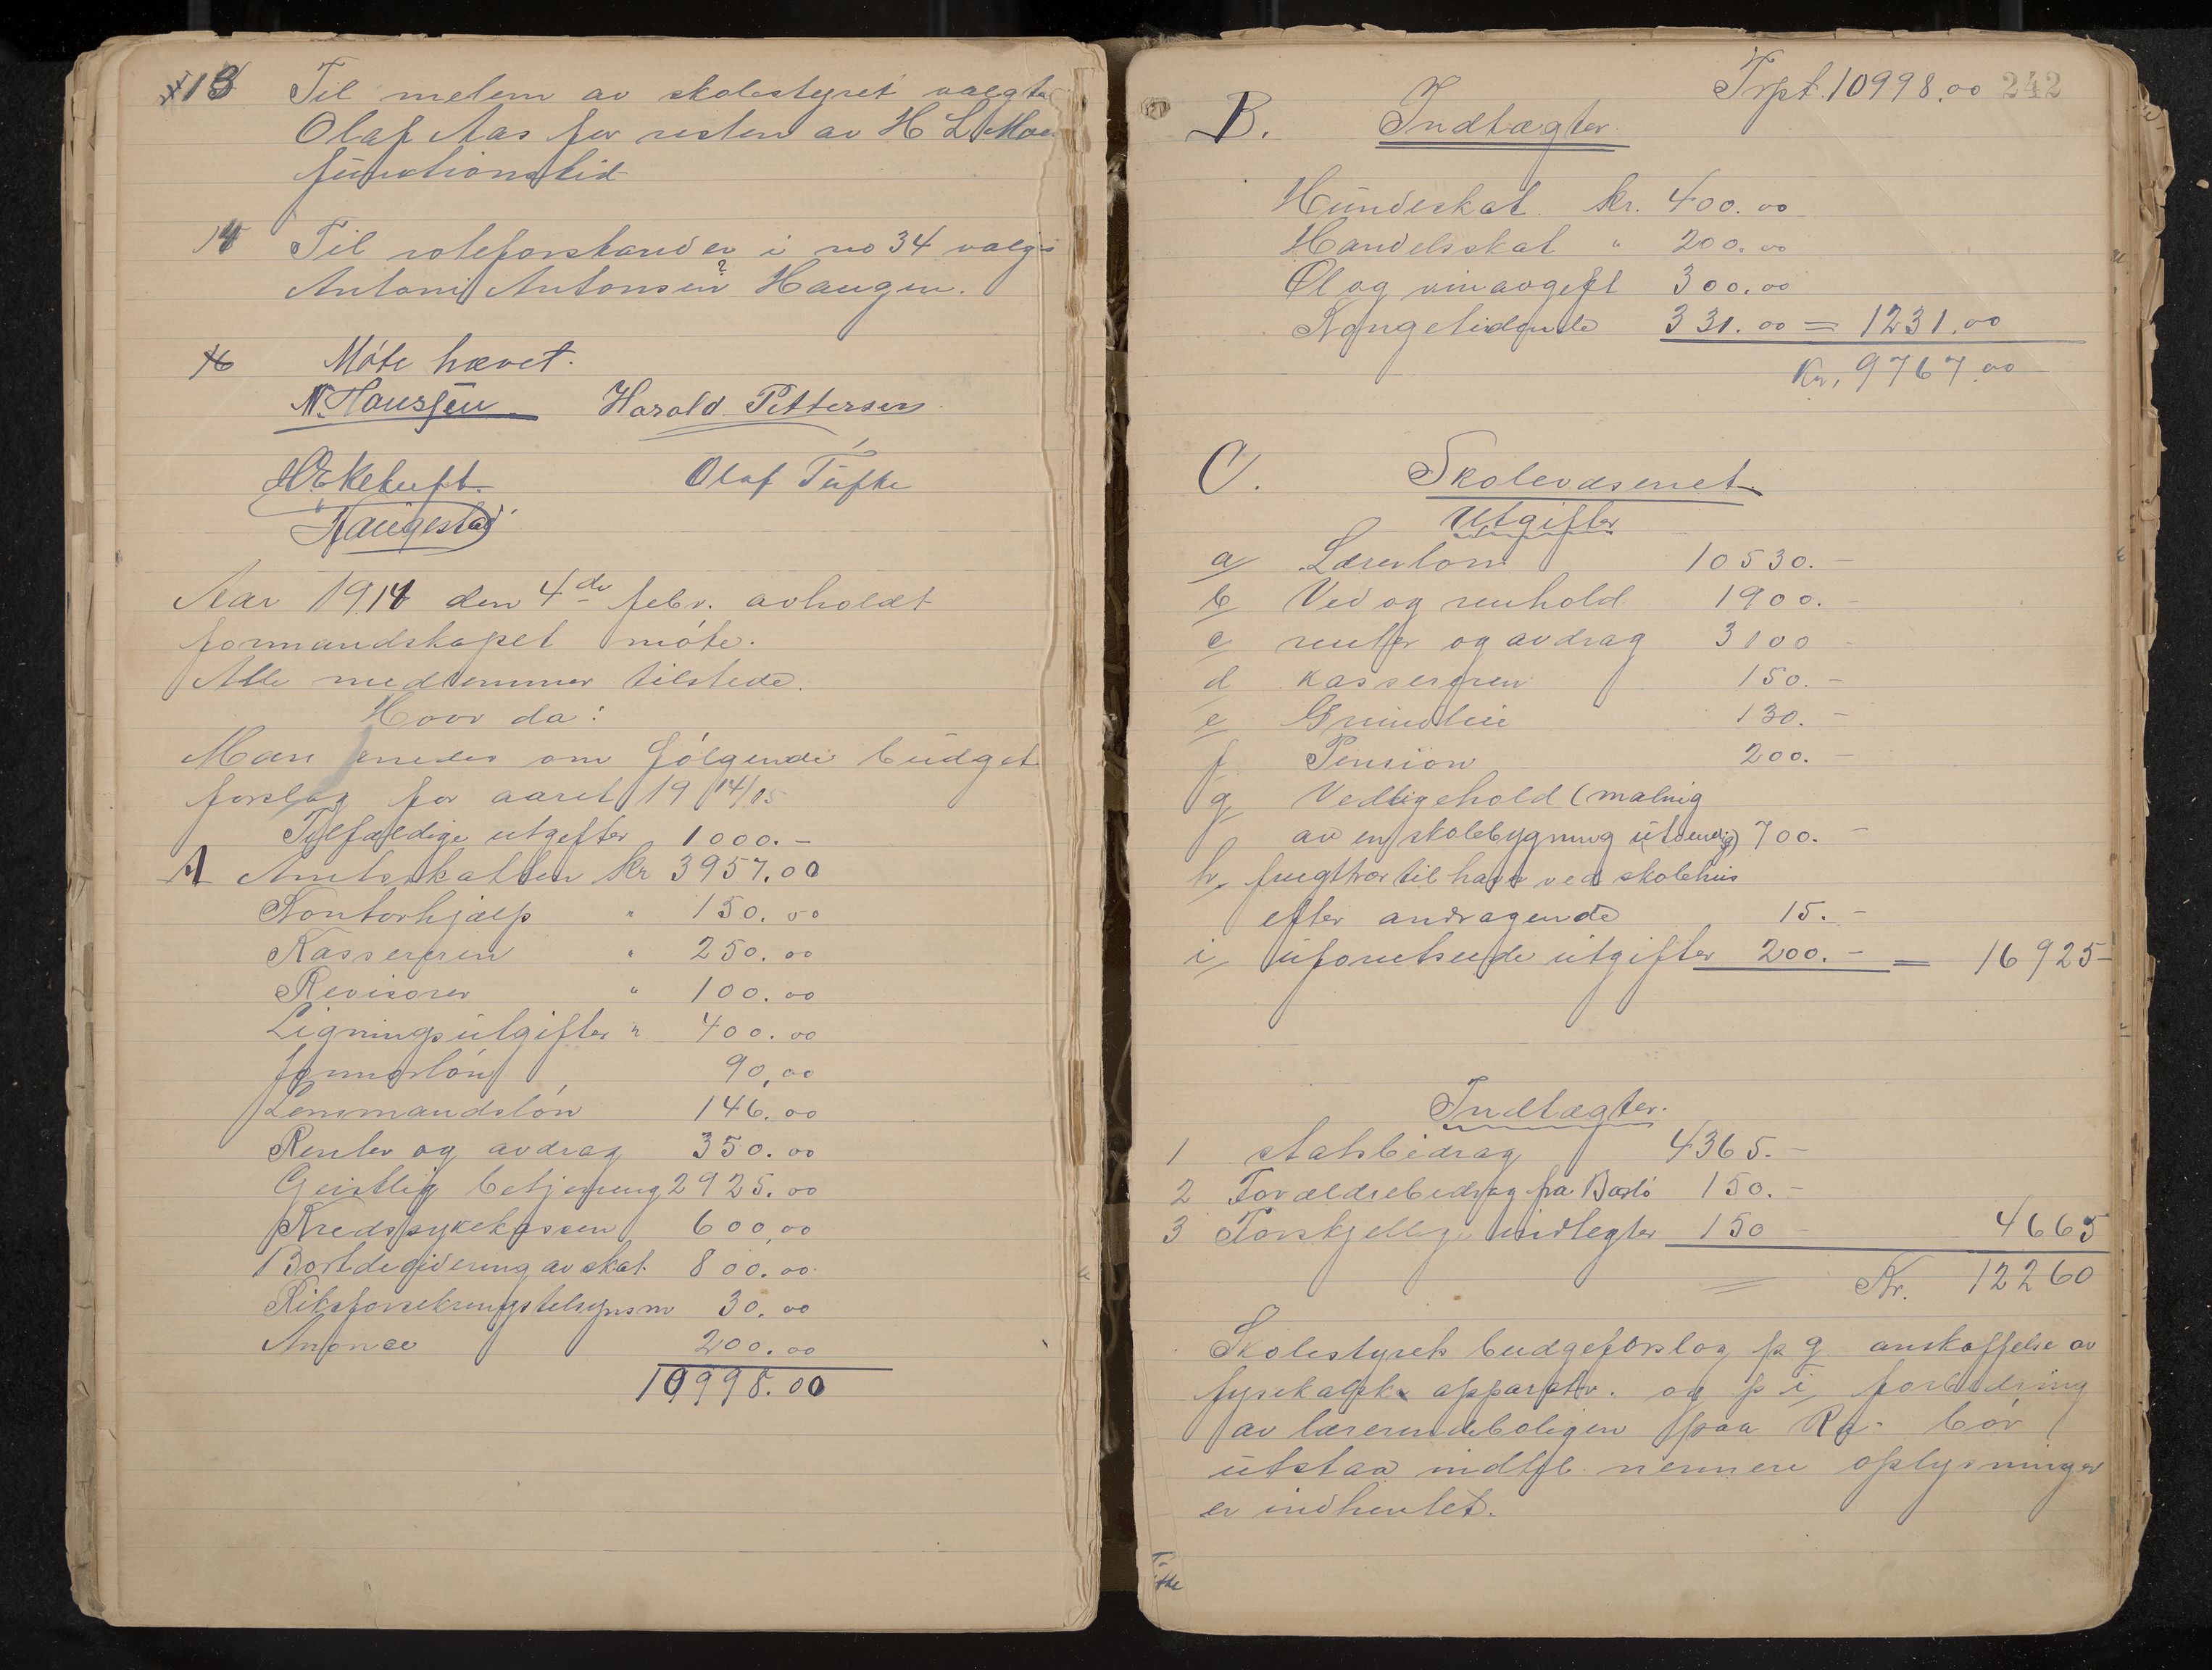 13 Til melem av skolestyret valgtes
Olaf Aas for resten av H L Moes
functionstid
14 Til roteforstander i no 34 valgtes
Anton Antonsen Haugen.
?
Møte hævet.
N. Hanssen Harald Pettersen
H Ekeluft. Olaf Tufte
Haugestad
Aar 1914 den 4de febr. avholdt
formandskapet møte.
Alle medlemmer tilstede.
Hvor da:
Man enedes om følgende budget
forslag for aaret 1914/15
Tilfældige utgifter 1000.-
A Amtsskatten kr 3957.00
Kontorhjælp " 150.00
Kassereren " 250.00
Revisorer " 100.00
Ligningsutgifter " 400.00
90,00
Lensmandsløn 146.00
Renter og avdrag 350.00
Geistlig betjening 2925.00
Kredssykekassen 600,00
av skat 800.00
Riksforsekringstelsynsm 30.00
Anonce 200.00
10998.00
Trpt. 10998.00 242
B. Indtægter
Hundeskat kr. 400.00
Handelsskat " 200.00
Øl og vinavgift 300.00
Kongetidende 331.00 = 1231.00
Kr. 9767.00
C. Skolevæsenet
Utgifter
a/ Lærerløn 10530.-
b/ Ved og renhold 1900.-
c/ renter og avdrag 3100 -
d kassereren 150.-
e/ Grundleie 130.-
f Pension 200.-
g Vedligehold (malnig
av en skolebygning utvendig) 700.-
h, frugttrær til have ved skolehus
efter andragende 15.-
i/ uforutseede utgifter 200.- = 16925-
Indtægter.
1 statsbidrag 4365.-
2 Forældrebidrag fra Bastø 150.-
3 Forskjellige indtegter 150 - 4665
= Kr. 12260
Skolestyrets budgeforslag p g anskaffelse av
fysekalske apparater. og p i, forbedring
av lærerindeboligen paa Ra- bør
utstaa indtil nermere oplysninger
er indhentet.